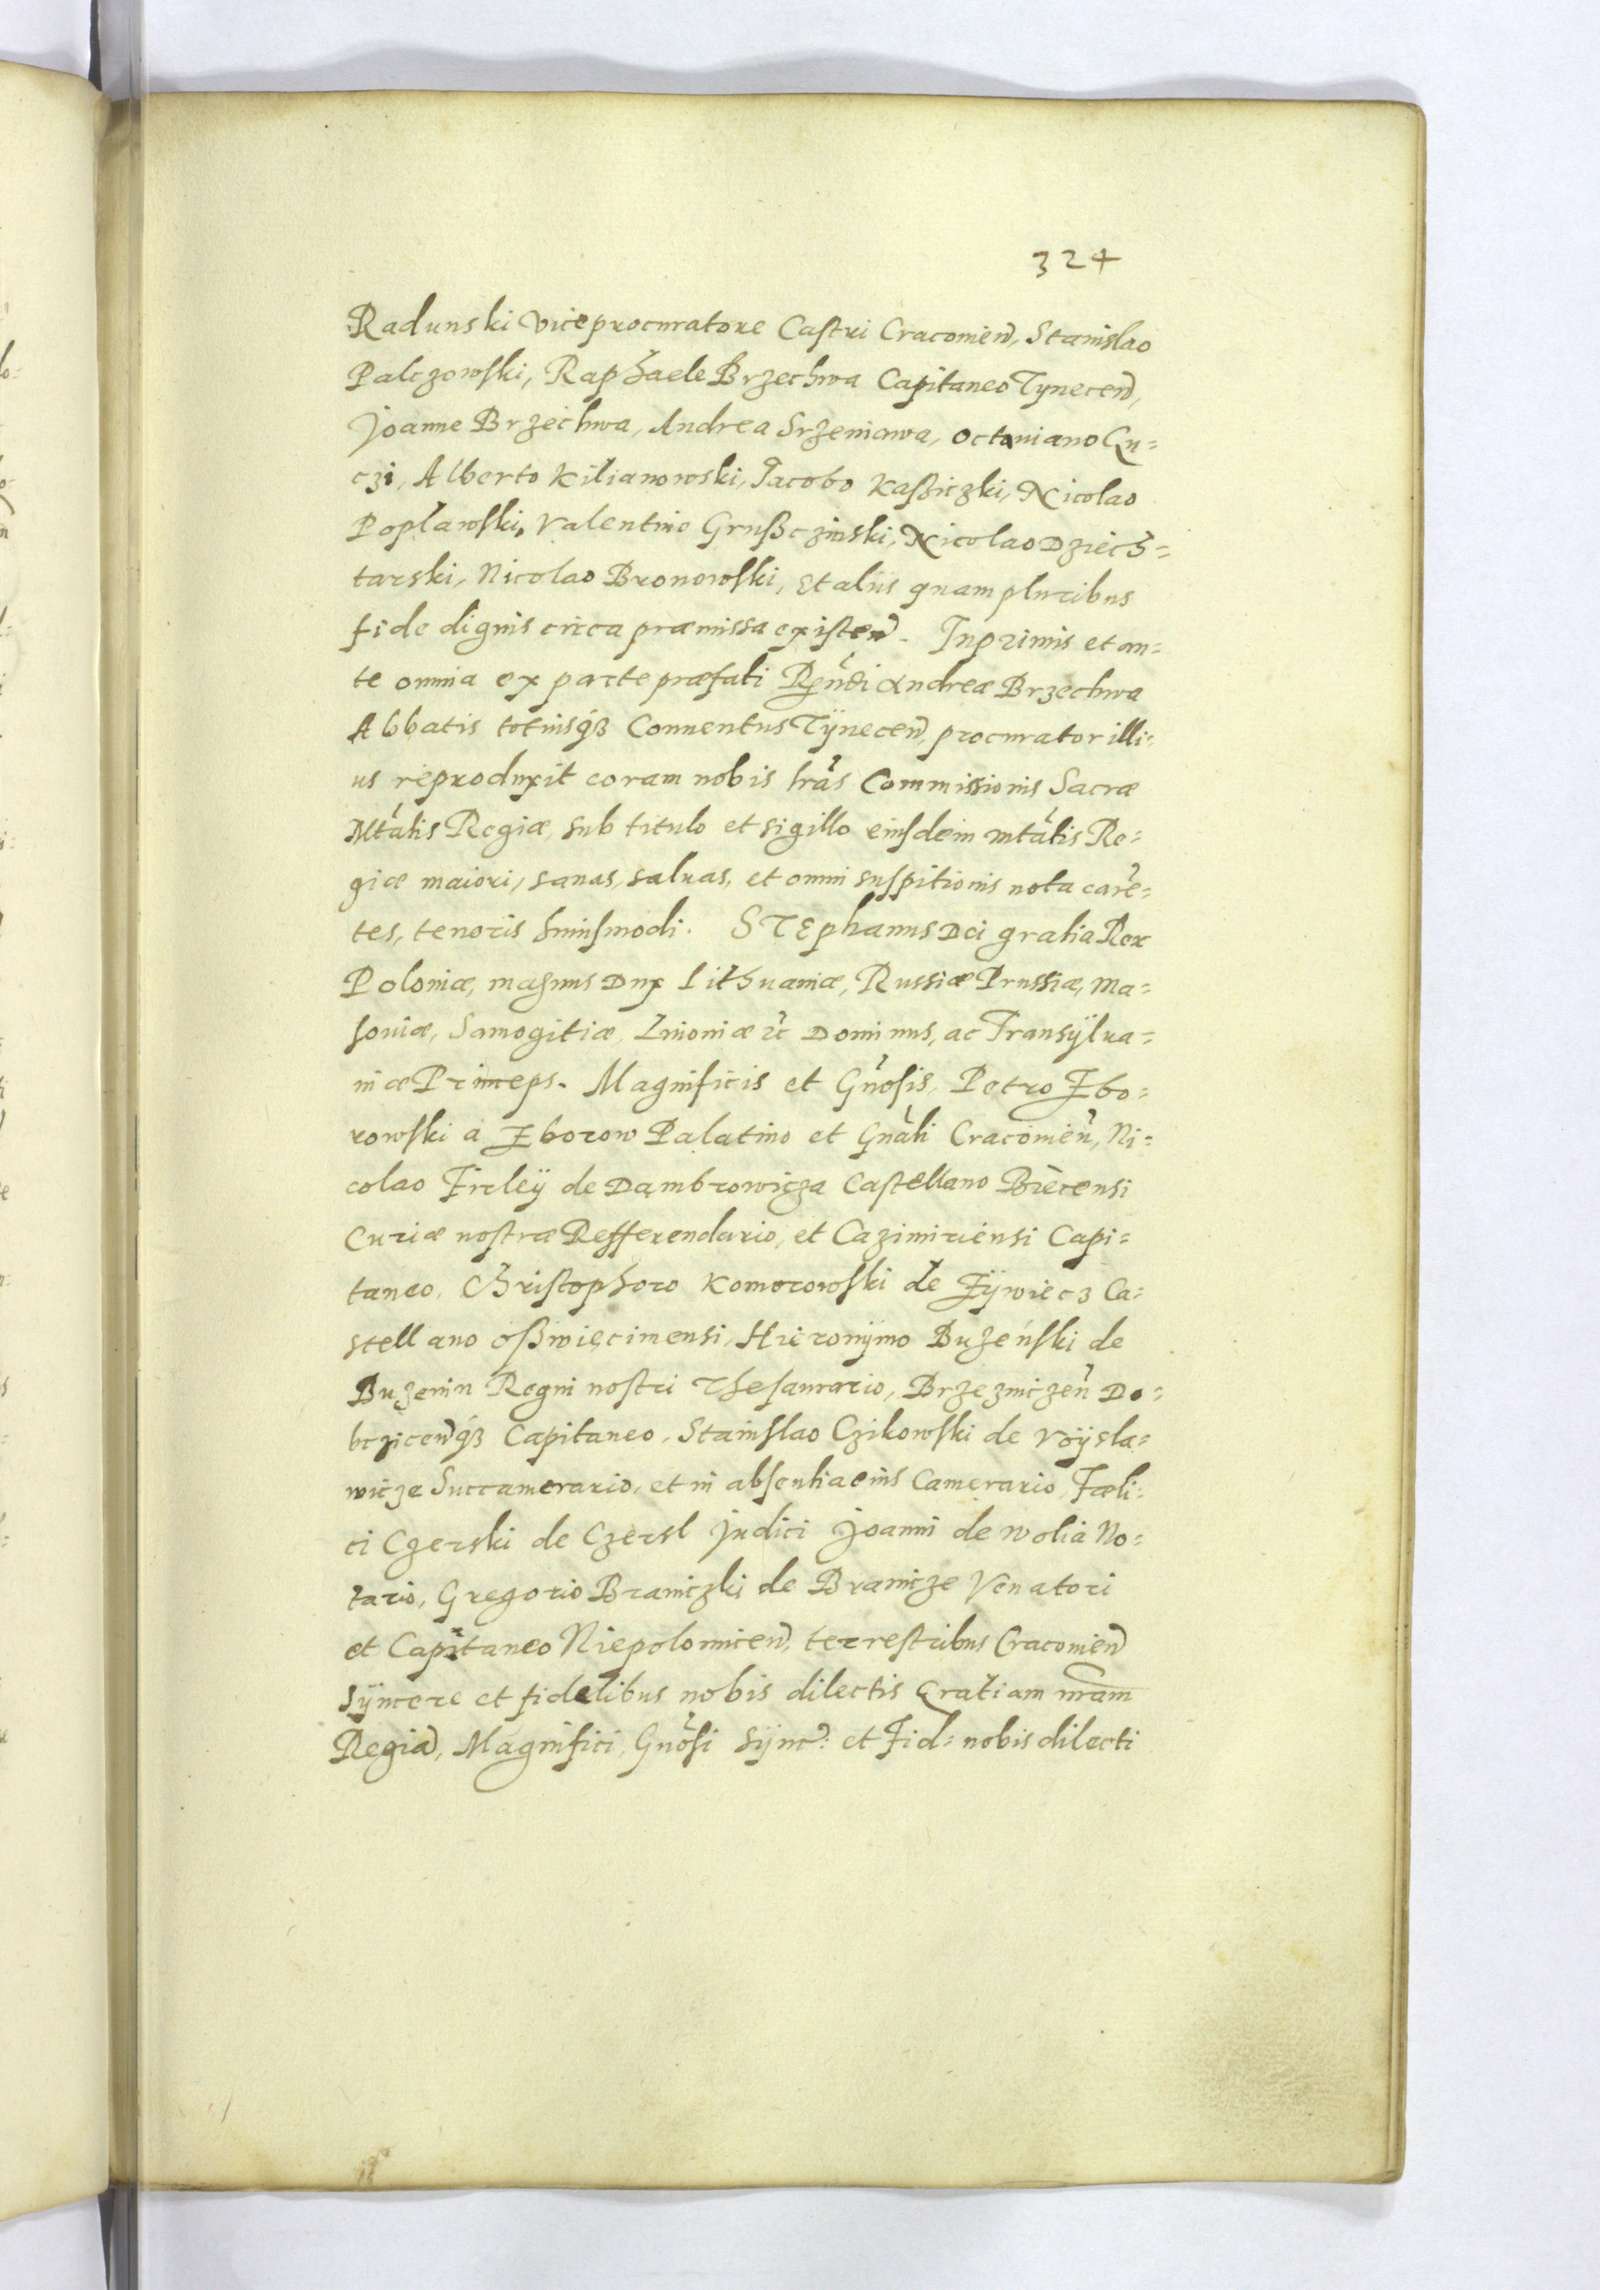 324
Radunski viceprocuratore Castri Cracouien̄, Stanislao
Palczowski, Raphaele Brzechwa Capitaneo Tynecen̄,
Joanne Brzechwa, Andrea Srzeniawa, Octauiano Gu=
czi, Alberto Kilianowski, Jacobo Kaßiczki, Nicolao
Poplawski, Valentino Grußczinski, Nicolao Dziech=
tarski, Nicolao Bronowski, et aliis quam pluribus
fide dignis circa præmissa existen̄. Inprimis et an=
te omnia ex parte præfati Rṇ̃di Andreæ Brzechwa
Abbatis totiusq́ꝫ Conuentus Tÿnecen̄, procurator illi=
us reproduxit coram nobis lr̃as Commissionis Sacræ
Mt̃atis Regiæ, sub titulo et sigillo eiusdem Mt̃atis Re=
giæ maiori, sanas, saluas, et omni suspitionis nota care̅=
tes, tenoris huiusmodi. STEphanus Dei gratia Rex
Poloniæ, magnus Dux Lithuaniæ, Russiæ Prussiæ, Ma=
souiæ, Samogitiæ, Liuoniæ ⁊c̃ Dominus, ac Transÿlua=
niæ Princeps. Magnificis et Gn̄osis, Petro Zbo=
rowski à Zborow Palatino et Gn̄ali Cracouien̄, Ni=
colao Firleÿ de Dąmbrowicza Castellano Biecensi
Curiæ nostræ Refferendario, et Cazimiriensi Capi=
taneo, Christophoro Komorowski de Zÿwiecz Ca=
stellano Oßwięcimensi, Hieronÿmo Bużeński de
Bużenin Regni nostri Thesaurario, Brzezniczen̄ Do=
bczicen̄q́ꝫ Capitaneo, Stanislao Czikowski de Voÿsla=
wicze Succamerario, et in absentia eius Camerario, Fæli=
ci Czerski de Czersl Judici Joanni de Wolia No=
tario, Gregorio Braniczki de Branicze Venatori
et Capitaneo Niepolomicen̄, terrestribus Cracouien̄
Sÿncere et fidelibus nobis dilectis Gratiam nr̅am
Regia̅, Magnifici, Gn̄osi Sÿnc̃: et Fid= nobis dilecti